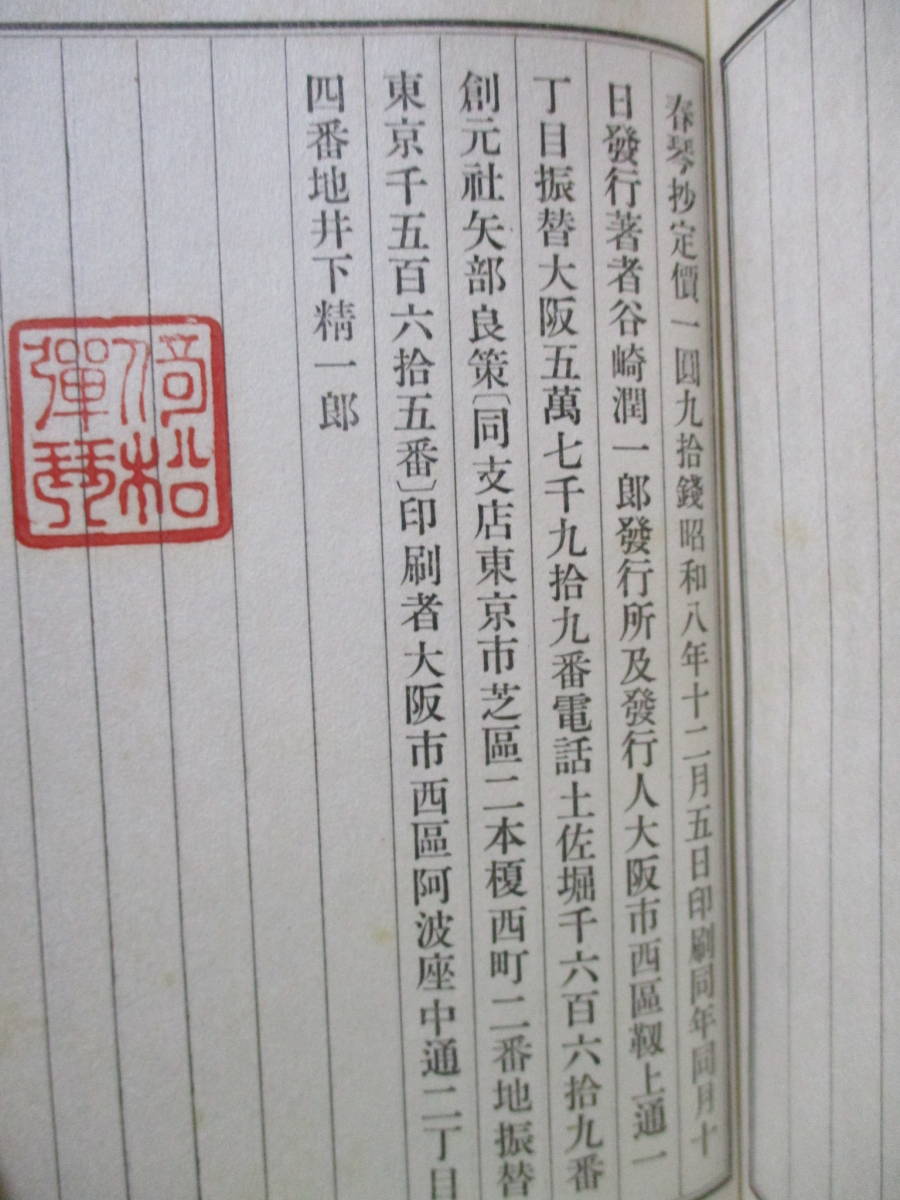 春琴抄定價一圓九拾錢昭和八年十二月五日印刷同年同月十
日發行著者谷崎潤一郎發行所及發行人大阪市西區靱上通一
丁目振替大阪五萬七千九拾九番電話土佐堀千六百六拾九番
創元社矢部良策〔同支店東京市芝區二本榎西町二番地振替
東京千五百六拾五番〕印刷者大阪市西區阿波座中通二丁目
四番地井下精一郎
倚松
彈琴